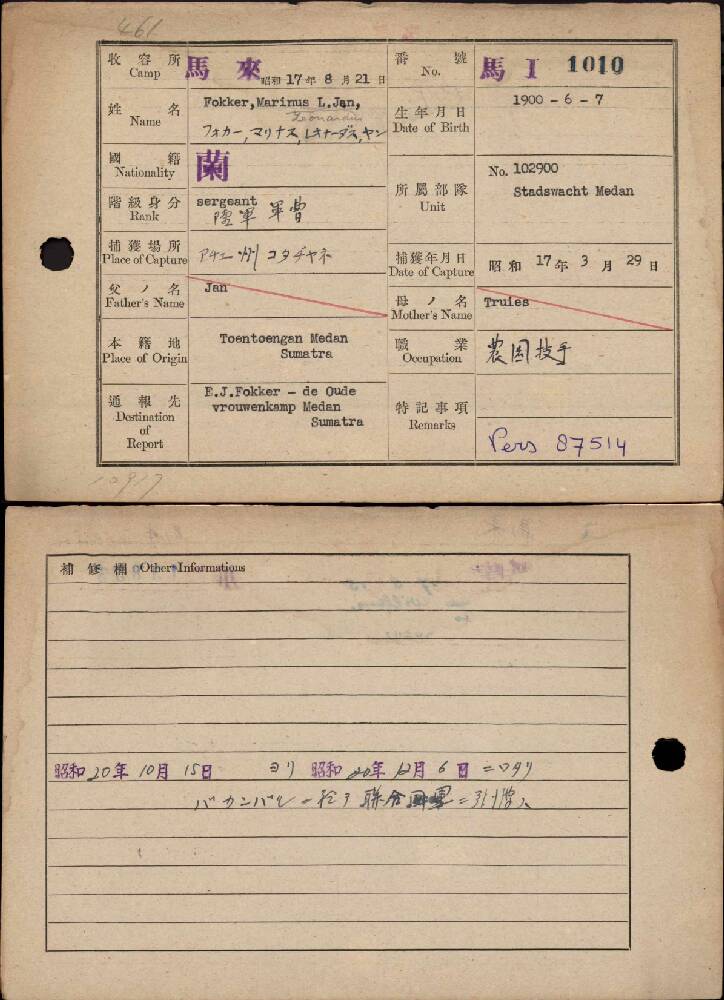 461
收容所 Camp
馬來 昭和17年8月21日
番號 No.
馬 I 1010
姓名 Name
Fokker, Marinus L.Jan,
Leonardus
フオカー,マリナス,レオナーダス,ヤン
生年月日 Date of Birth
1900 - 6 - 7
國籍 Nationality
蘭
所屬部隊 Unit
No. 102900
Stadswacht Medan
階級身分 Rank
sergeant
陸軍 軍曹
捕獲場所 Place of Capture
アチエー州 コタチヤネ
捕獲年月日 Date of Capture
昭和 17年 3月 29日
父ノ名 Father's Name
Jan
母ノ名 Mother's Name
Truies
本籍地 Place of Origin
Toentoengan Medan
Sumatra
職業 Occupation
農園技手
通報先 Destination of Report
E.J.Fokker - de Oude
vrouwenkamp Medan
Sumatra
特記事項 Remarks
Pers 87514
10917
補修欄 Other Informations
昭和20年10月15日 ヨリ 昭和20年12月6日 ニワタリ
バカンバル ニ於テ 聯合國軍ニ引渡ス